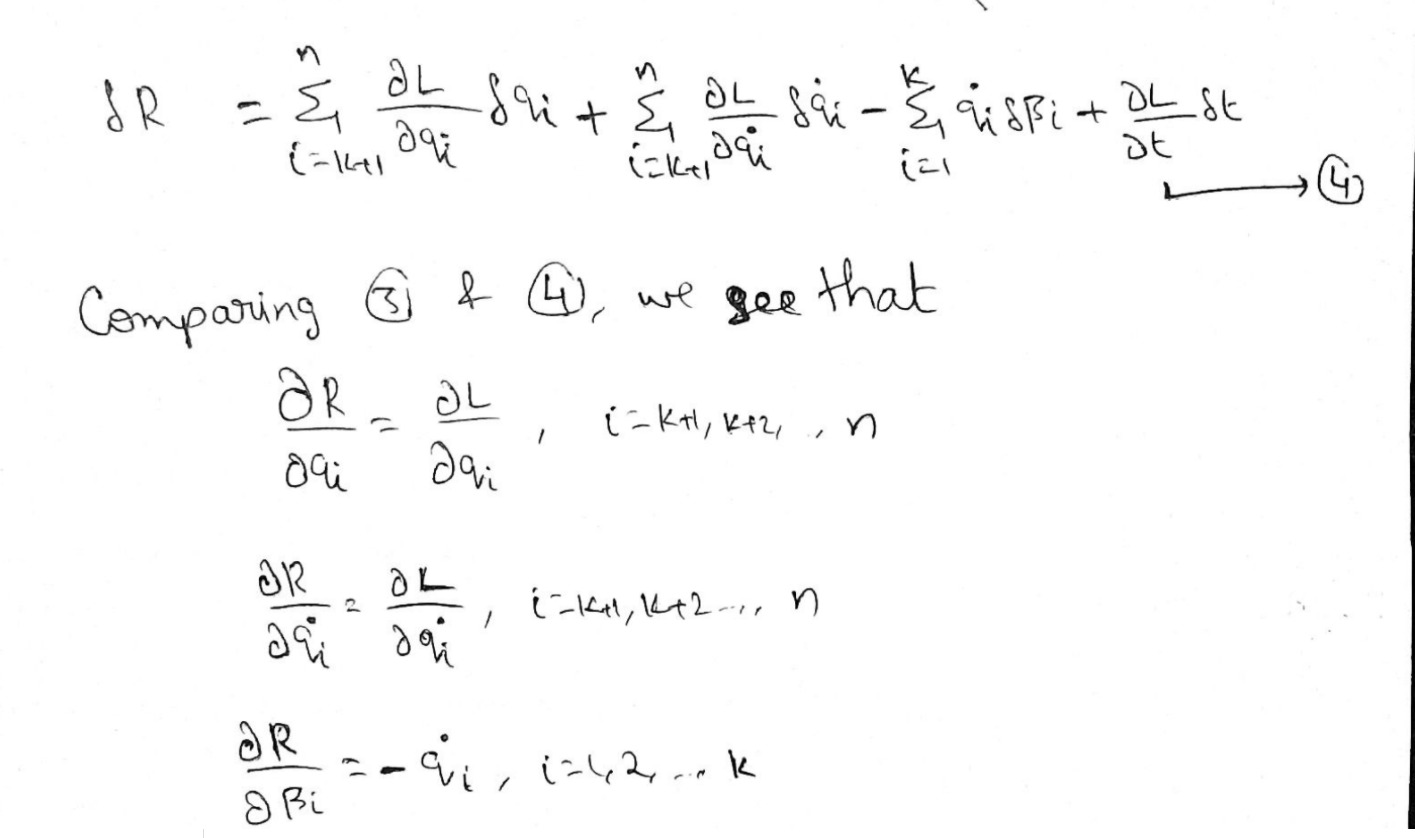 δR = Σ_{i=k+1}^{n} ∂L/∂qᵢ δqᵢ + Σ_{i=k+1}^{n} ∂L/∂q̇ᵢ δq̇ᵢ - Σ_{i=1}^{k} q̇ᵢ δβᵢ + ∂L/∂t δt
→ ④
Comparing ③ & ④, we see that
∂R/∂qᵢ = ∂L/∂qᵢ , i=k+1, k+2, , n
∂R/∂q̇ᵢ = ∂L/∂q̇ᵢ , i=k+1, k+2 ..., n
∂R/∂βᵢ = - q̇ᵢ , i=1, 2, ... k